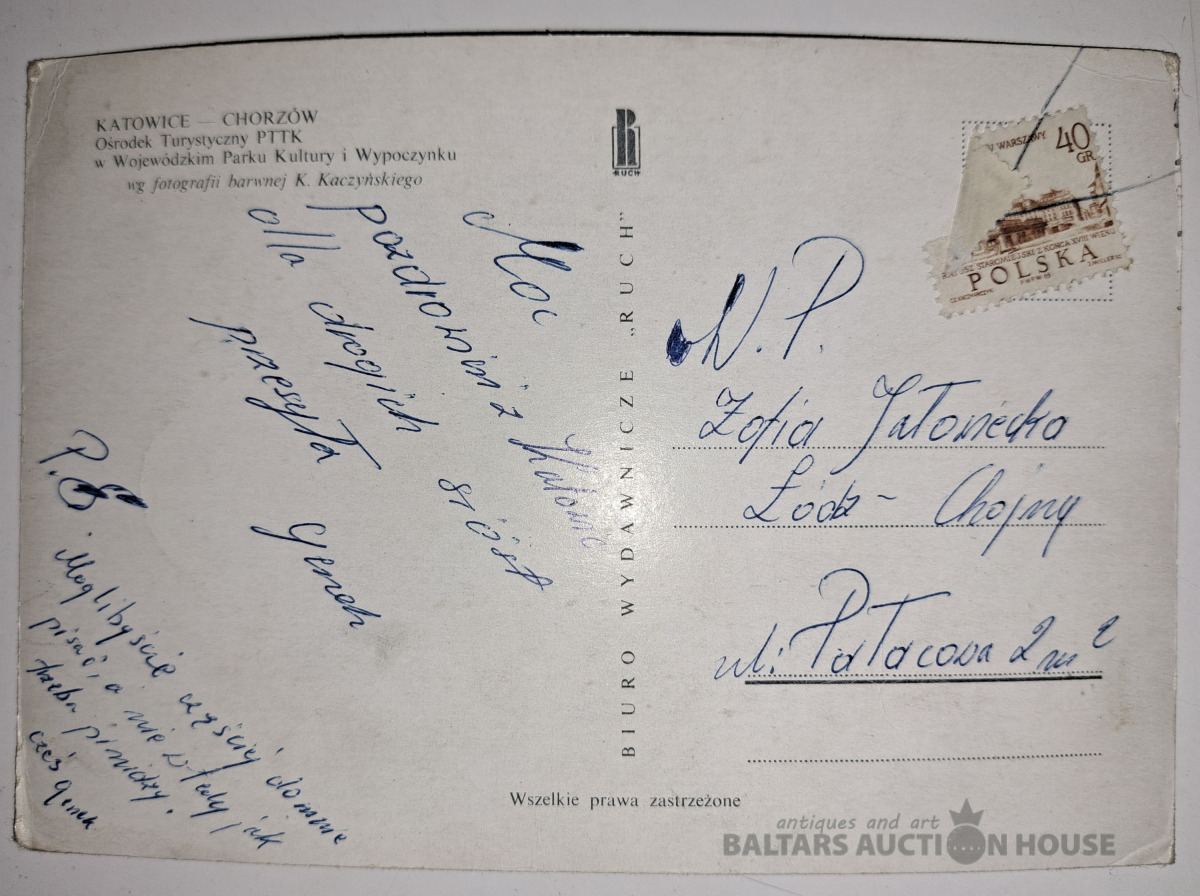 KATOWICE — CHORZÓW
Ośrodek Turystyczny PTTK
w Wojewódzkim Parku Kultury i Wypoczynku
wg fotografii barwnej K. Kaczyńskiego
RUCH
BIURO WYDAWNICZE „RUCH"
WARSZAWY 40
GR
RATUSZ STAROMIEJSKI Z KOŃCA XVIII WIEKU
POLSKA
Moc
pozdrowień z Katowic
dla drogich sióstr
przesyła
Genek
P.S.
Moglibyście częściej do mnie
pisać, a nie wtedy jak
trzeba pieniędzy.
cześ Genek
W. P.
Zofia Jałowiecka
Łódź - Chojny
ul: Pałacowa 2 m 2
Wszelkie prawa zastrzeżone
antiques and art
BALTARS AUCTION HOUSE